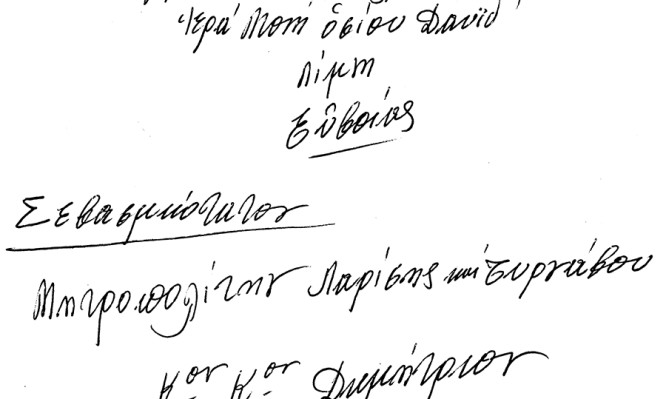 Ἱερά Μονή ὁσίου Δαυΐδ
Λίμνη
Εὐβοίας
Σεβασμιώτατον
Μητροπολίτην Λαρίσης καί Τυρνάβου
Κον Κον Δημήτριον